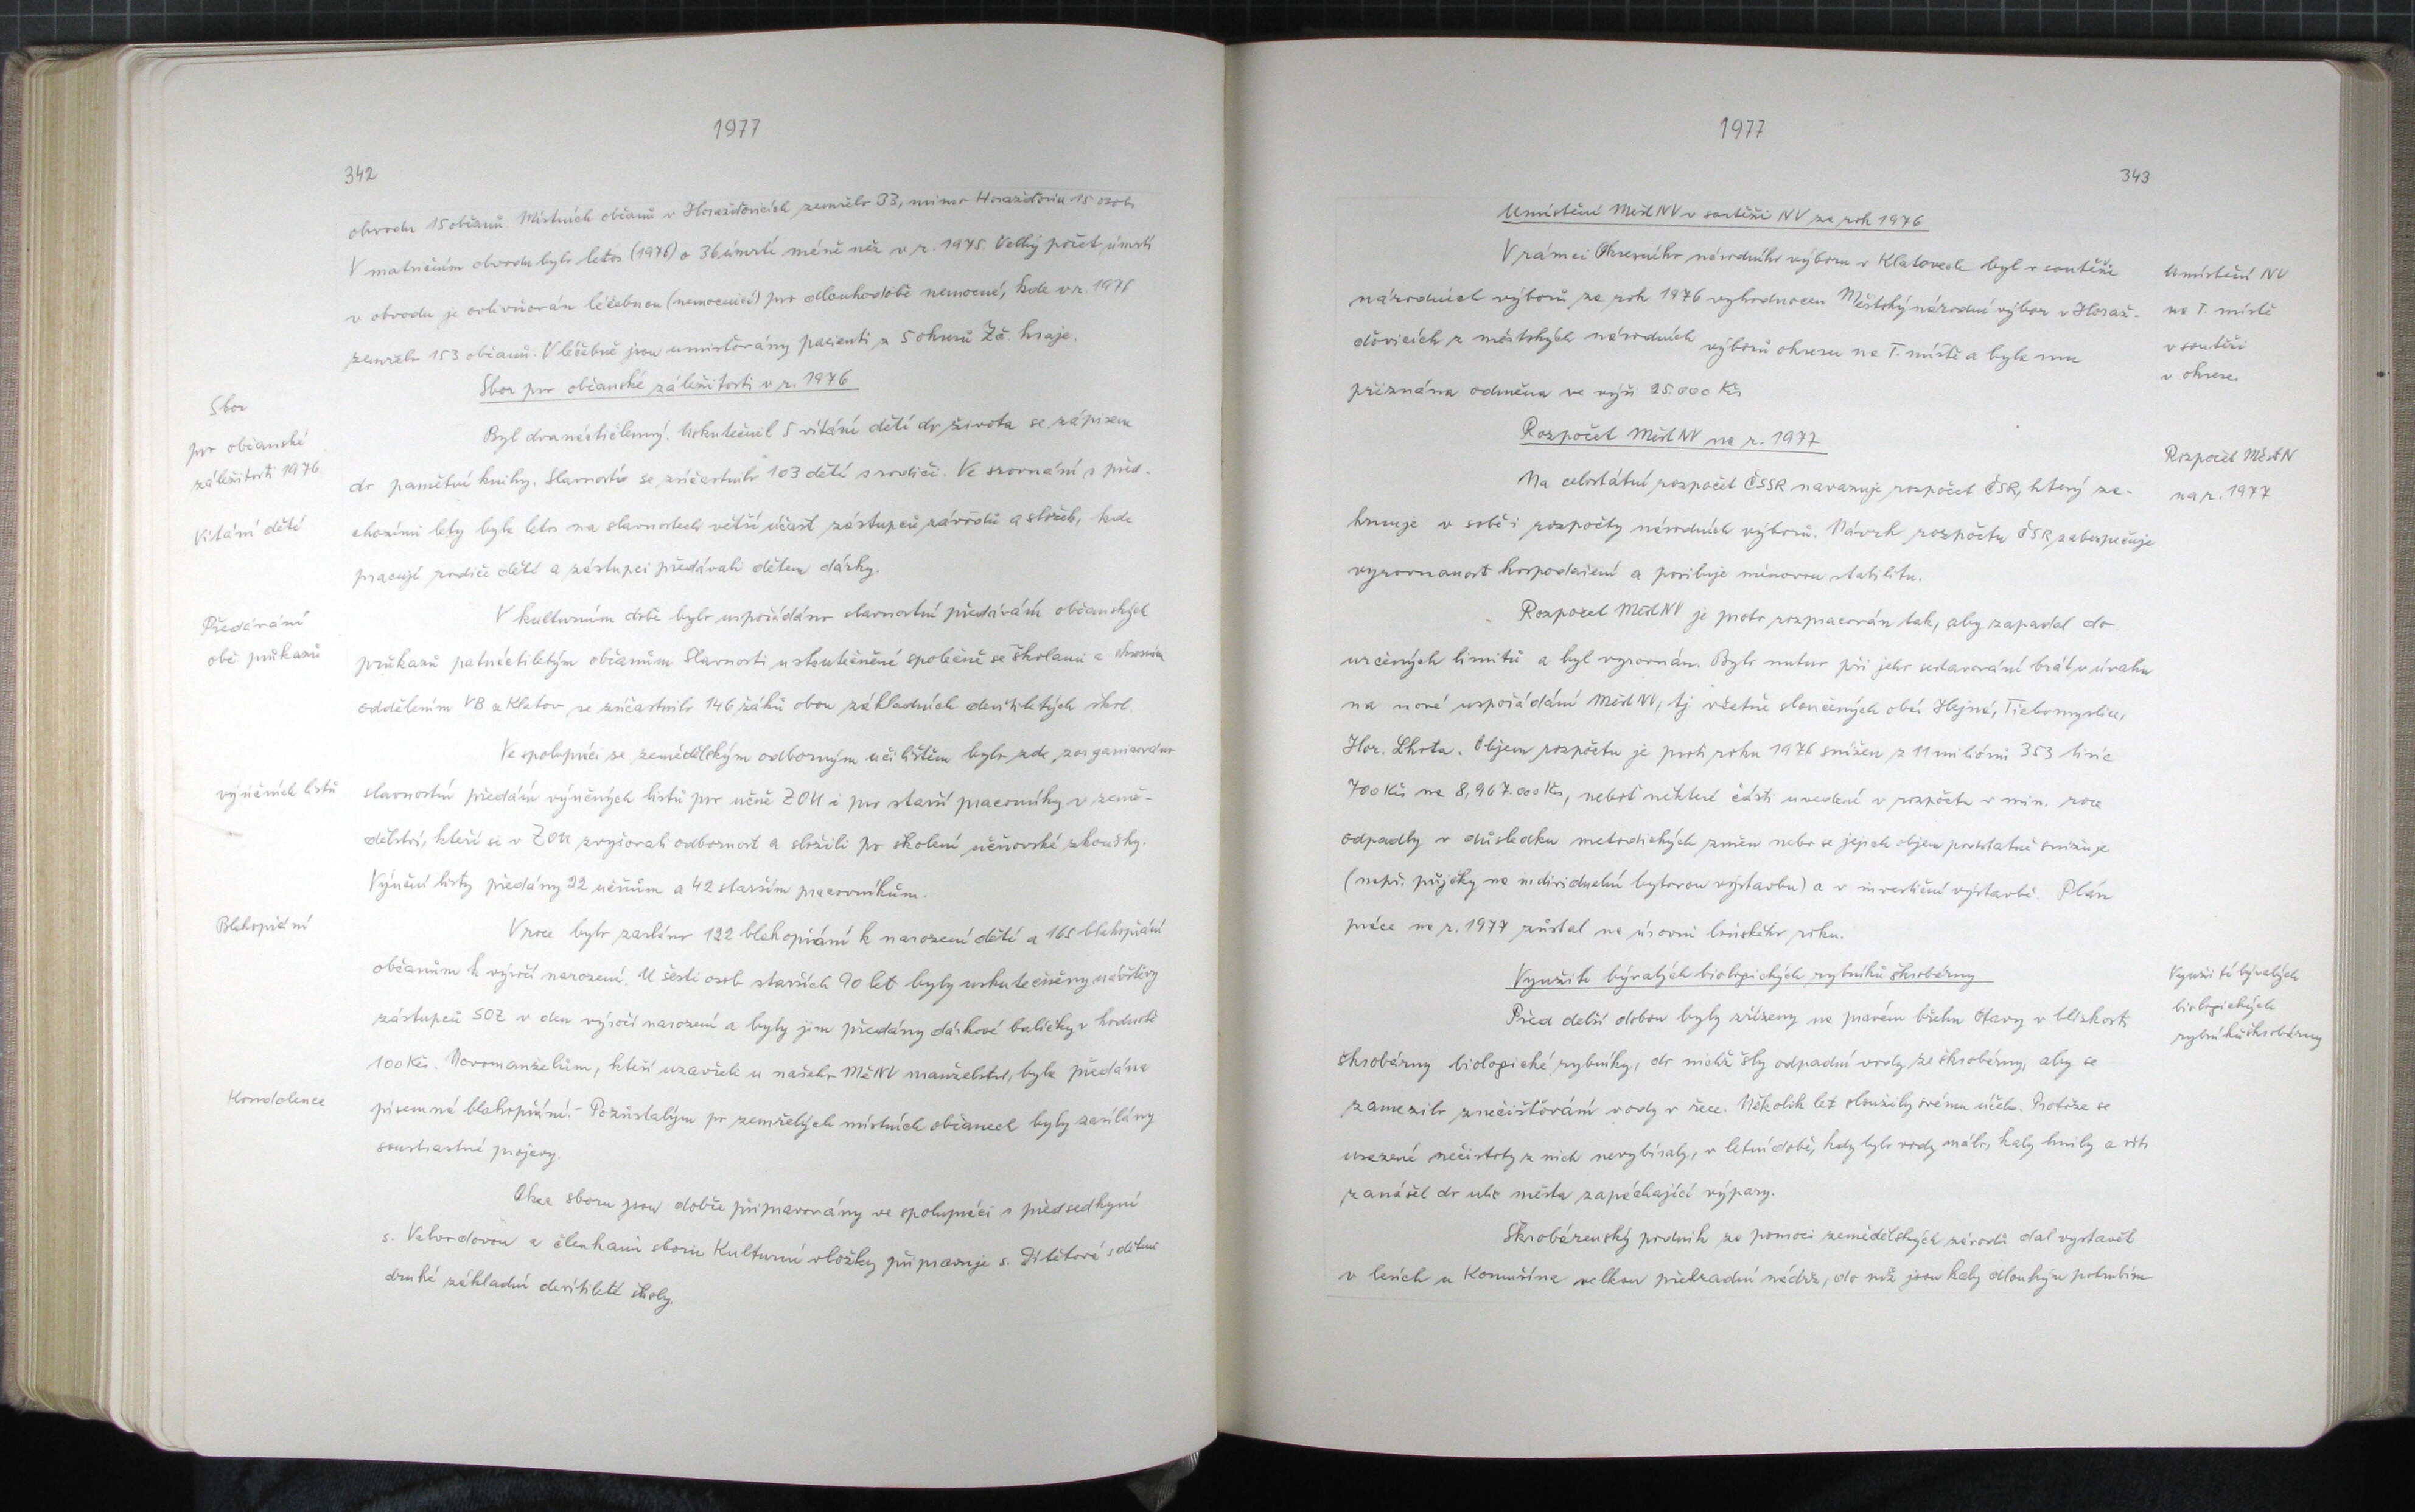 1977
342
obvodu 15 občanů. Místních občanů v Horažďovicích zemřelo 33, mimo Horažďovice 15 osob.
V matričním obvodu bylo letos (1976) o 36 úmrtí méně než v r. 1975. Velký počet úmrtí
v obvodu je ovlivňován léčebnou (nemocnicí) pro dlouhodobě nemocné, kde v r. 1976
zemřelo 153 občanů. V léčebně jsou umisťováni pacienti z 5 okresů Zč. kraje.
Sbor pro občanské záležitosti v r. 1976
Sbor
pro občanské
záležitosti 1976
Byl dvanáctičlenný. Uskutečnil 5 vítání dětí do života se zápisem
do pamětní knihy. Slavností se zúčastnilo 103 dětí s rodiči. Ve srovnání s před-
Vítání dětí
chozími lety byla letos na slavnostech větší účast zástupců závodů a složek, kde
pracují rodiče dětí a zástupci předávali dětem dárky.
Předávání
obč. průkazů
V kulturním domě bylo uspořádáno slavnostní předávání občanských
průkazů patnáctiletým občanům. Slavnosti uskutečněné společně se školami a okresním
oddělením VB z Klatov se zúčastnilo 146 žáků obou základních devítiletých škol.
Ve spolupráci se zemědělským odborným učilištěm bylo zde zorganizováno
výučních listů
slavnostní předání výučných listů pro učně ZOU i pro starší pracovníky v země-
dělství, kteří si v ZOU zvyšovali odbornost a složili po školení učňovské zkoušky.
Výuční listy předány 22 učňům a 42 starším pracovníkům.
Blahopřání
V roce bylo zasláno 122 blahopřání k narození dětí a 165 blahopřání
občanům k výročí narození. U šesti osob starších 90 let byly uskutečněny návštěvy
zástupců SOZ v den výročí narození a byly jim předány dárkové balíčky v hodnotě
100 Kčs. Novomanželům, kteří uzavřeli u našeho MěNV manželství, byla předána
Kondolence
písemná blahopřání. - Pozůstalým po zemřelých místních občanech byly zasílány
soustrastné projevy.
Akce sboru jsou dobře připravovány ve spolupráci s předsedkyní
s. členkami sboru Kulturní vložky připravuje s. s dětmi
druhé základní devítileté školy.
1977
343
Umístění MěstNV v soutěži NV za rok 1976
V rámci Okresního národního výboru v Klatovech byl v soutěži
národních výborů za rok 1976 vyhodnocen Městský národní výbor v Horaž-
ďovicích z městských národních výborů okresu na I. místě a byla mu
přiznána odměna ve výši 25.000 Kčs
Umístění NV
na I. místě
v soutěži
v okrese
Rozpočet MěstNV na r. 1977
Rozpočet MěstN
na r. 1977
Na celostátní rozpočet ČSSR navazuje rozpočet ČSR, který za-
hrnuje v sobě i rozpočty národních výborů. Návrh rozpočtu ČSR zabezpečuje
vyrovnanost hospodaření a posiluje měnovou stabilitu.
Rozpočet MěstNV je proto rozpracován tak, aby zapadal do
určených limitů a byl vyrovnán. Bylo nutno při jeho sestavování brát v úvahu
na nové uspořádání MěstNV, tj. včetně sloučených obcí Hejná, Třebomyslice,
Hor. Lhota. Objem rozpočtu je proti roku 1976 snížen z 11 miliónů 353 tisíc
700 Kčs na 8,967.000 Kčs, neboť některé části uvedené v rozpočtu v min. roce
odpadly v důsledku metodických změn nebo se jejich objem podstatně snižuje
(např. půjčky na individuelní bytovou výstavbu) a v investiční výstavbě. Plán
práce na r. 1977 zůstal na úrovni loňského roku.
Využití bývalých biologických rybníků škrobárny
Využití bývalých
biologických
rybníků škrobárny
Před delší dobou byly zřízeny na pravém břehu Otavy v blízkosti
škrobárny biologické rybníky, do nichž šly odpadní vody ze škrobárny, aby se
zamezilo znečišťování vody v řece. Několik let sloužily svému účelu. Protože se
usazené nečistoty z nich nevybíraly, v letní době, kdy bylo vody málo, kaly hnily a vítr
zanášel do ulic města zapáchající výpary.
Škrobárenský podnik za pomoci zemědělských závodů dal vystavět
v lesích u Komušína velkou přehradní nádrž, do níž jsou kaly dlouhým potrubím